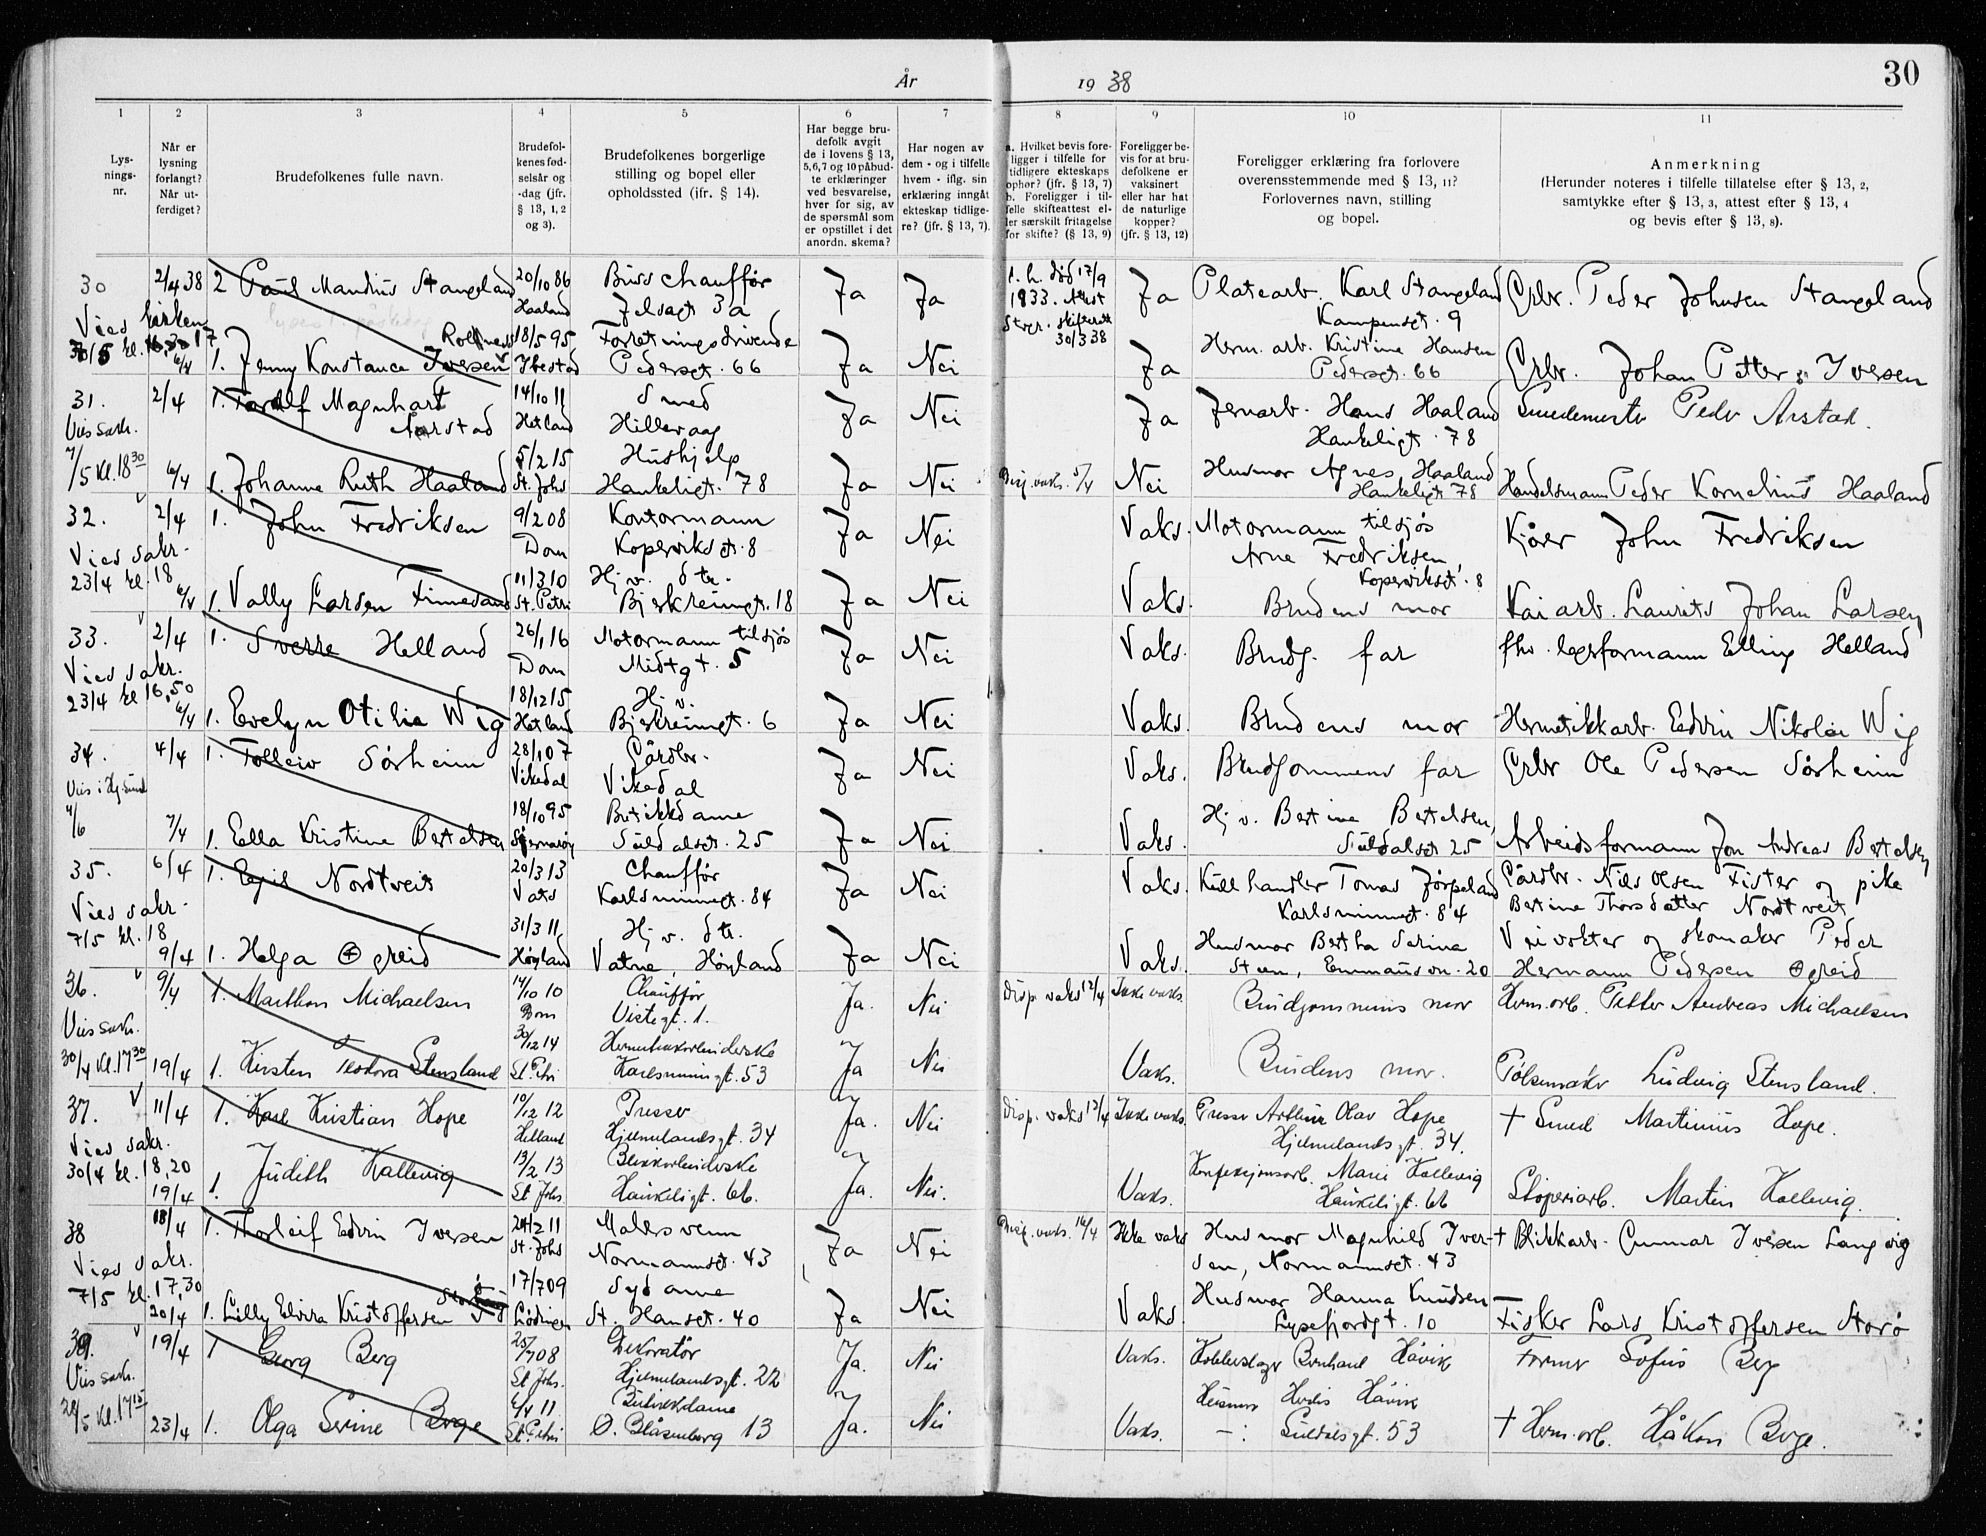 År 1938
30
1 2 3 4 5 6 7 8 9 10 11
Lysningsnr.
Når er lysning forlangt? Når utferdiget?
Brudefolkenes fulle navn.
Brudefolkenes fødselsår og -dag (jfr. § 13, 1, 2 og 3).
Brudefolkenes borgerlige stilling og bopel eller opholdssted (ifr. § 14).
Har begge brudefolk avgit de i lovens § 13, 5,6,7 og 10 påbudte erklæringer ved besvarelse, hver for sig, av de spørsmål som er opstillet i det anordn. skema?
Har nogen av dem - og i tilfelle hvem - iflg. sin erklæring inngåt ekteskap tidligere? (jfr. § 13, 7).
a. Hvilket bevis foreligger i tilfelle for tidligere ekteskaps ophør? (jfr. § 13, 7) b. Foreligger i tilfelle skifteattest eller særskilt fritagelse for skifte? (§ 13, 9)
Foreligger bevis for at brudefolkene er vaksinert eller har hat de naturlige kopper? (jfr. § 13, 12)
Foreligger erklæring fra forlovere overensstemmende med § 13, 11? Forlovernes navn, stilling og bopel.
Anmerkning (Herunder noteres i tilfelle tillatelse efter § 13, 2, samtykke efter § 13, 3, attest efter § 13, 4 og bevis efter § 13, 8).
30 2/4 38 2 Paul Mandius Stangeland 20/10 86 Haaland Buss chauffør Jelsagt 3a Ja Ja 1. h. død 17/9 1933. Attest Stvgr. skifterett 30/3 38 Ja Platearb. Karl Stangeland Kampenset. 9 Grbr. Peder Johnsen Stangeland
Vies kirken kl. 17 6/4 1. Jenny Konstance Iversen Rolfsnes 18/5 95 Ibestad Forretningsdrivende Pederset. 66 Ja Nei Ja Herm. arb. Kristine Hansen Pederset. 66 Grbr. Johan Petter Iversen
31. 2/4 1. Toralf Magnhart Aarstad 14/10 11 Hetland Smed Hillevaag Ja Nei Ja Jernarb. Hans Haaland Haukeligt. 78 Smedemester Peder Arstad.
Vies sakr. 7/5 kl. 18 30 6/4 1. Johanne Ruth Haaland 5/2 15 St. Johs Hushjelp Haukeligt. 78 Ja Nei Disp. vaks. 5/4 Nei Husmor Agnes Haaland Haukeligt 78 Handelsmann Peder Kornelius Haaland
32. 2/4 1. John Fredriksen 9/2 08 Dom Kontormann Kopervikset. 8 Ja Nei Vaks. Motormann tilsjøs Arne Fredriksen, Kopervikset. 8 Kjører John Fredriksen
Vies sakr. 23/4 kl. 18 6/4 1. Vally Larsen Finnesand 11/3 10 St. Petri Hj v. dtr. Bjerkreimgt. 18 Ja Nei Vaks. Brudens mor Kaiarb. Laurits Johan Larsen
33. 2/4 1. Sverre Helland 26/1 16 Dom Motormann tilsjøs Midtgt. 5 Ja Nei Vaks. Brudg. far fhv. lagerformann Elling Helland
Vies sakr. 23/4 kl 16,50 6/4 1. Evelyn Otilie Wig 18/12 15 Hetland Hj v. Bjerkreimgt. 6 Ja Nei Vaks. Brudens mor Hermetikkarb. Edvin Nikolai Wig
34. 4/4 1. Tolleiv Sørheim 28/10 7 Vikedal Gårdbr. Vikedal Ja Nei Vaks. Brudgommens far Grbr Ole Pedersen Sørheim
Vies i Hg.sund 4/6 7/4 1. Ella Kristine Bertelsen 18/10 95 Sjernarøy Butikkdame Suldalset. 25 Ja Nei Vaks. Hj v. Bertine Bertelsen, Suldalset 25 Arbeidsformann Jon Andreas Bertelsen
35. 6/4 1. Egil Nordtveit 20/3 13 Vats Chauffør Karlsminnegt. 84 Ja Nei Vaks. Kullhandler Tomas Jørpeland Karlsminnegt. 84 Gårdbr. Nils Olsen Fister og pike Bertine Thorsdatter Nordtveit
Vies sakr. 7/5 kl. 18 9/4 1. Helga Øgreid 31/3 11, Høyland Hj v. dtr. Vatne, Høyland Ja Nei Vaks. Husmor Bertha Serina Steen, Emmausvn. 20 Veivokter og skomaker Peder Hermann Pedersen Øgreid
36. 9/4 1. Marthon Michaelsen 14/10 10 Dom Chauffør Vistegt. 1. Ja. Nei Disp. vaks 12/4 Ikke vaks. Brudgommens mor Herm.arb. Petter Andreas Michaelsen
Vies sakr. 30/4 kl. 17 30 19/4 1. Kirsten Teodora Stensland 30/12 14 St. Petri Hermetikkarbeiderske Karlsminnegt. 53 Ja Nei Vaks. Brudens mor. Pølsemaker Ludvig Stensland.
37. 11/4 1. Karl Kristian Hope 10/12 12 Helland Presser Hjelmelandsgt. 34 Ja. Nei Disp. vaks 13/4 Ikke vaks. Presser Arthur Olav Hope Hjelmelandsgt. 34. † Smed Martinius Hope.
Vies sakr. 30/4 kl. 18,20 19/4 1. Judith Kallevig 13/2 13 St Johs. Blikkarbeiderske Haukeligt. 66. Ja. Nei. Vaks. Konfeksjonsarb. Marie Kallevig Haukeligt. 66 Støperiarb. Martin Kallevig.
38 18/4 1. Thorleif Edvin Iversen 24/2 11 St. Johs Malersvenn Normannset. 43 Ja Nei Disp. vaks. 16/4 Ikke vaks Husmor Magnhild Iversen, Normannset. 43 † Blikkarb. Gunnar Iversen Langvig
Vies sakr. 7/5 kl. 17,30 20/4 1. Lilly Elvira Kristoffersen 17/7 09 Lødingen Sydame St. Hanset. 40 Ja Nei Vaks. Husmor Hanna Knudsen Lysefjordgt. 10 Fisker Lars Kristoffersen Storø
39. 19/4 1 Georg Berg 25/7 08 St Johs. Dekoratør Hjelmelandsgt. 22 Ja. Nei Vaks. Bernhard Håvik Former Sofus Berg
Vies sakr. 28/5 kl. 17 15 23/4 1. Olga Serine Berge 6/4 11 St. Petri Butikkdame Ø. Blåsenborg 13 Ja. Nei Vaks. Husmor Hodis Håvik -:- Suldalsgt. 53 † Herm.arb. Håkon Berge.